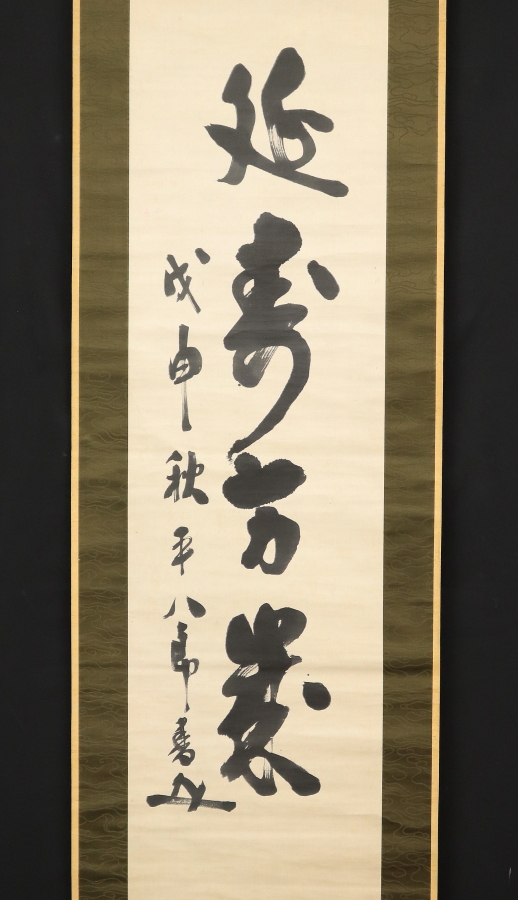 延壽万歳
戊申秋平八郎書